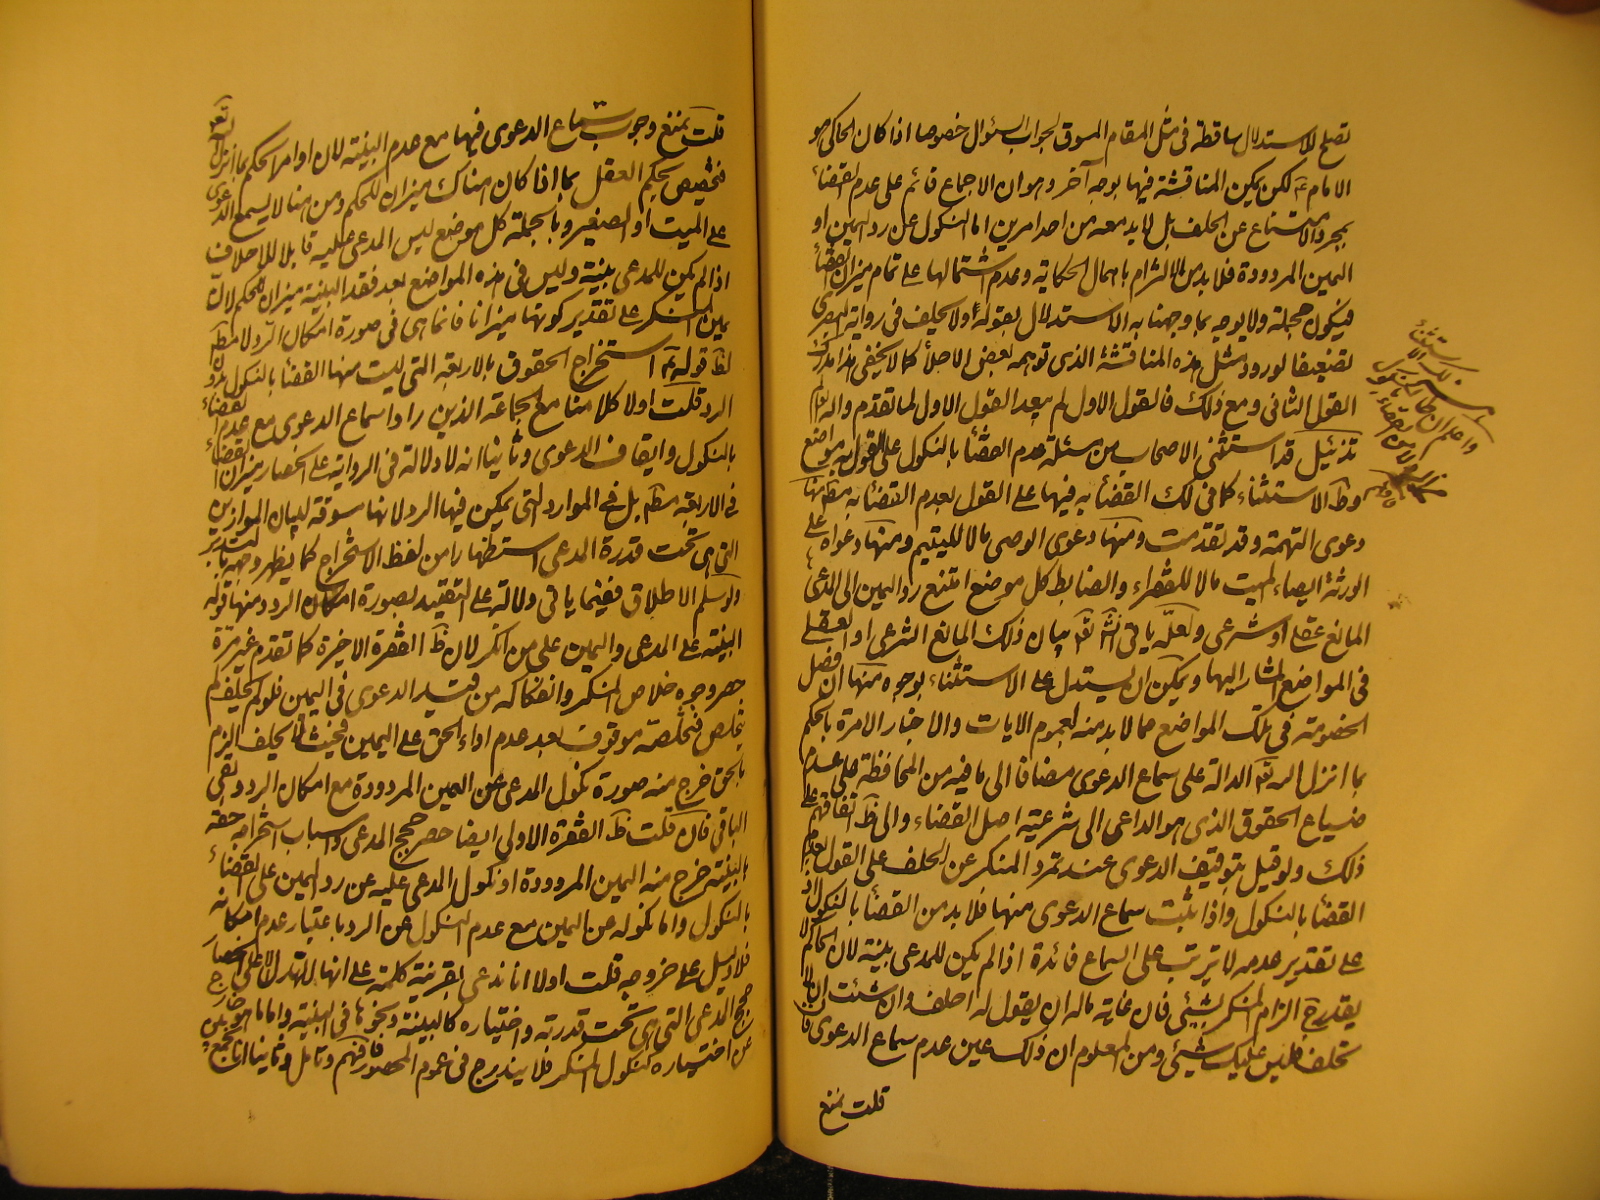 تصلح للاستدلال ساقطة فى مثل المقام المسوق لجواب السؤال خصوصا اذا كان الحاكى هو
الامام ع لكن يمكن المناقشة فيها بوجه آخر وهو ان الاجماع قائم على عدم القضاء
بمجرد الامتناع عن الحلف بل لا بد معه من احد امرين اما النكول عن رد اليمين او
اليمين المردودة فلا بد من الالتزام باهمال الحكاية وعدم اشتمالها على تمام ميزان القضاء
فيكون مجملة ولا يوجه بما وجهنا به الاستدلال بقوله ع ولا يحلف فى رواية البصرى
تضعيفا لورود مثل هذه المناقشة الذى توهمه بعض الاجلاء كما لا يخفى هذا مدرك
القول الثانى ومع ذلك فالقول الاول لم يبعد القول الاول لما تقدم والله العالم
تذئيل قد استثنى الاصحاب من مسئلة عدم القضاء بالنكول على القول به مواضع
وظ الاستثناء كما فى لك القضاء به فيها على القول بعدم القضاء به مط منها
دعوى التهمة وقد تقدمت ومنها دعوى الوصى مالا لليتيم ومنها دعواه على
الورثة ايصاء الميت مالا للفقراء والضابط كل موضع امتنع رد اليمين الى المدعى
لمانع عقلى او شرعى ولعله ياتى انش تع بيان ذلك المانع الشرعى او العقلى
فى المواضع المشار اليها ويمكن ان يستدل على الاستثناء بوجوه منها ان فصل
الخصومة فى تلك المواضع مما لا بد منه لعموم الايات والاخبار الامرة بالحكم
بما انزل الله تع الدالة على سماع الدعوى مضافا الى ما فيه من المحافظة على عدم
ضياع الحقوق الذى هو الداعى الى شرعية اصل القضاء والى ظ اتفاقهم على
ذلك ولو قيل بتوقيف الدعوى عند تمرد المنكر عن الحلف على القول بعدم
القضاء بالنكول واذا ثبت سماع الدعوى منها فلا بد من القضاء بالنكول اذ
على تقدير عدمه لا يترتب على السماع فائدة اذا لم يكن للمدعى بينة لان الحاكم لا
يقدر ح الزام المنكر بشيئى فان غاية ماله ان يقول له احلف وان شئت ان لا
تحلف فليس عليك شيئى ومن المعلوم ان ذلك عين عدم سماع الدعوى فان
قلت نمنع
واعلم ان
قلت نمنع وجوب سماع الدعوى فيها مع عدم البينة لان اوامر الحكم بما انزل الله تع
فتخصيص بحكم العقل بما اذا كان هناك ميزان للحكم ومن هنا لا يسمع الدعوى
على الميت او الصغير وبالجملة كل موضع ليس المدعى عليه قابلا للاحلاف
اذا لم يكن للمدعى بينة وليس فى هذه المواضع بعد فقد البينة ميزان للحكم لان
يمين المنكر على تقدير كونها ميزانا فانما هى فى صورة امكان الرد لا مط
لظ قوله ع استخراج الحقوق بالاربعة التى ليست منها القضاء بالنكول
الرد قلت اولا كلامنا مع الجماعة الذين رادا سماع الدعوى مع عدم القضاء
بالنكول وايقاف الدعوى وثانيا انه لا دلالة فى الرواية على انحصار ميزان القضاء
فى الاربعة مط بل فى الموارد التى يمكن فيها الرد لانها مسوقة لبيان الموازين
التى هى تحت قدرة المدعى استظهارا من لفظ الاستخراج كما يظهر وجهه بالتدبر
ولو سلم الاطلاق ففيما ياتى دلالة على التقييد بصورة امكان الرد ومنها قوله
البينة على المدعى واليمين على من انكر لان ظ الفقرة الاخيرة كما تقدم غير مرة
حصر وجوه خلاص المنكر وانفكاكه من قيد الدعوى فى اليمين فلو لم يحلف لم
يتخلص فتخلصه موقوف بعد عدم اداء الحق على اليمين فحيث لم يحلف الزم
بالحق خرج منه صورة نكول المدعى عن اليمين المردودة مع امكان الرد وبقى
الباقى فان قلت ظ الفقرة الاولى ايضا حصر حجج المدعى واسباب استخراجه حقه
بالبينة خرج منه اليمين المردودة او نكول المدعى عليه عن رد اليمين على القضاء
بالنكول واما نكوله عن اليمين مع عدم النكول عن الرد باعتبار عدم امكانه
فلا دليل على خروجه قلت اولا انا ندعى بقرينة كلمة على انها لا تدل الا على انحصار
حجج المدعى التى هى تحت قدرته واختياره كالبينة ونحوها فى البينة واما ما هو خارج
عن اختياره كنكول المنكر فلا يندرج فى عموم المحصور فافهم وتامل وثانيا انا نجمع بين